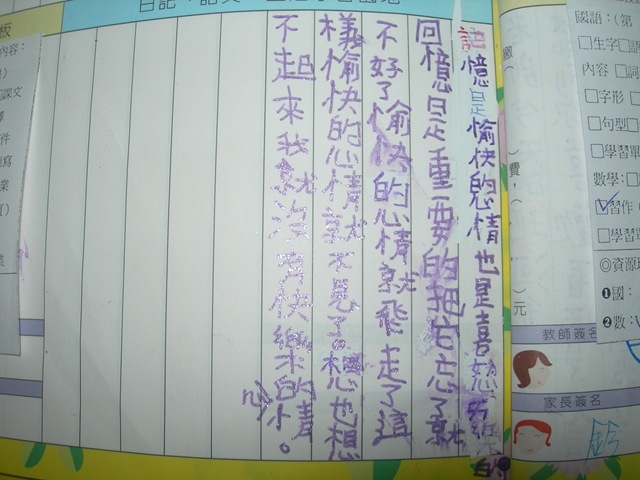 憶是愉快的心情也是喜怒哀樂的
回憶是重要的把它忘了就
不好了愉快的心情就飛走了這
樣愉快的心情就不見了。想也想
不起來我就沒有快樂的心情。
國語：（第
□生字□
內容 □詞
□字形 □
□句型□
□學習單
數學：□
習作
□學習單
◎資源
❶國：
❷數：
費
元
教師簽名
家長簽名
版
內容：
課文
件
業